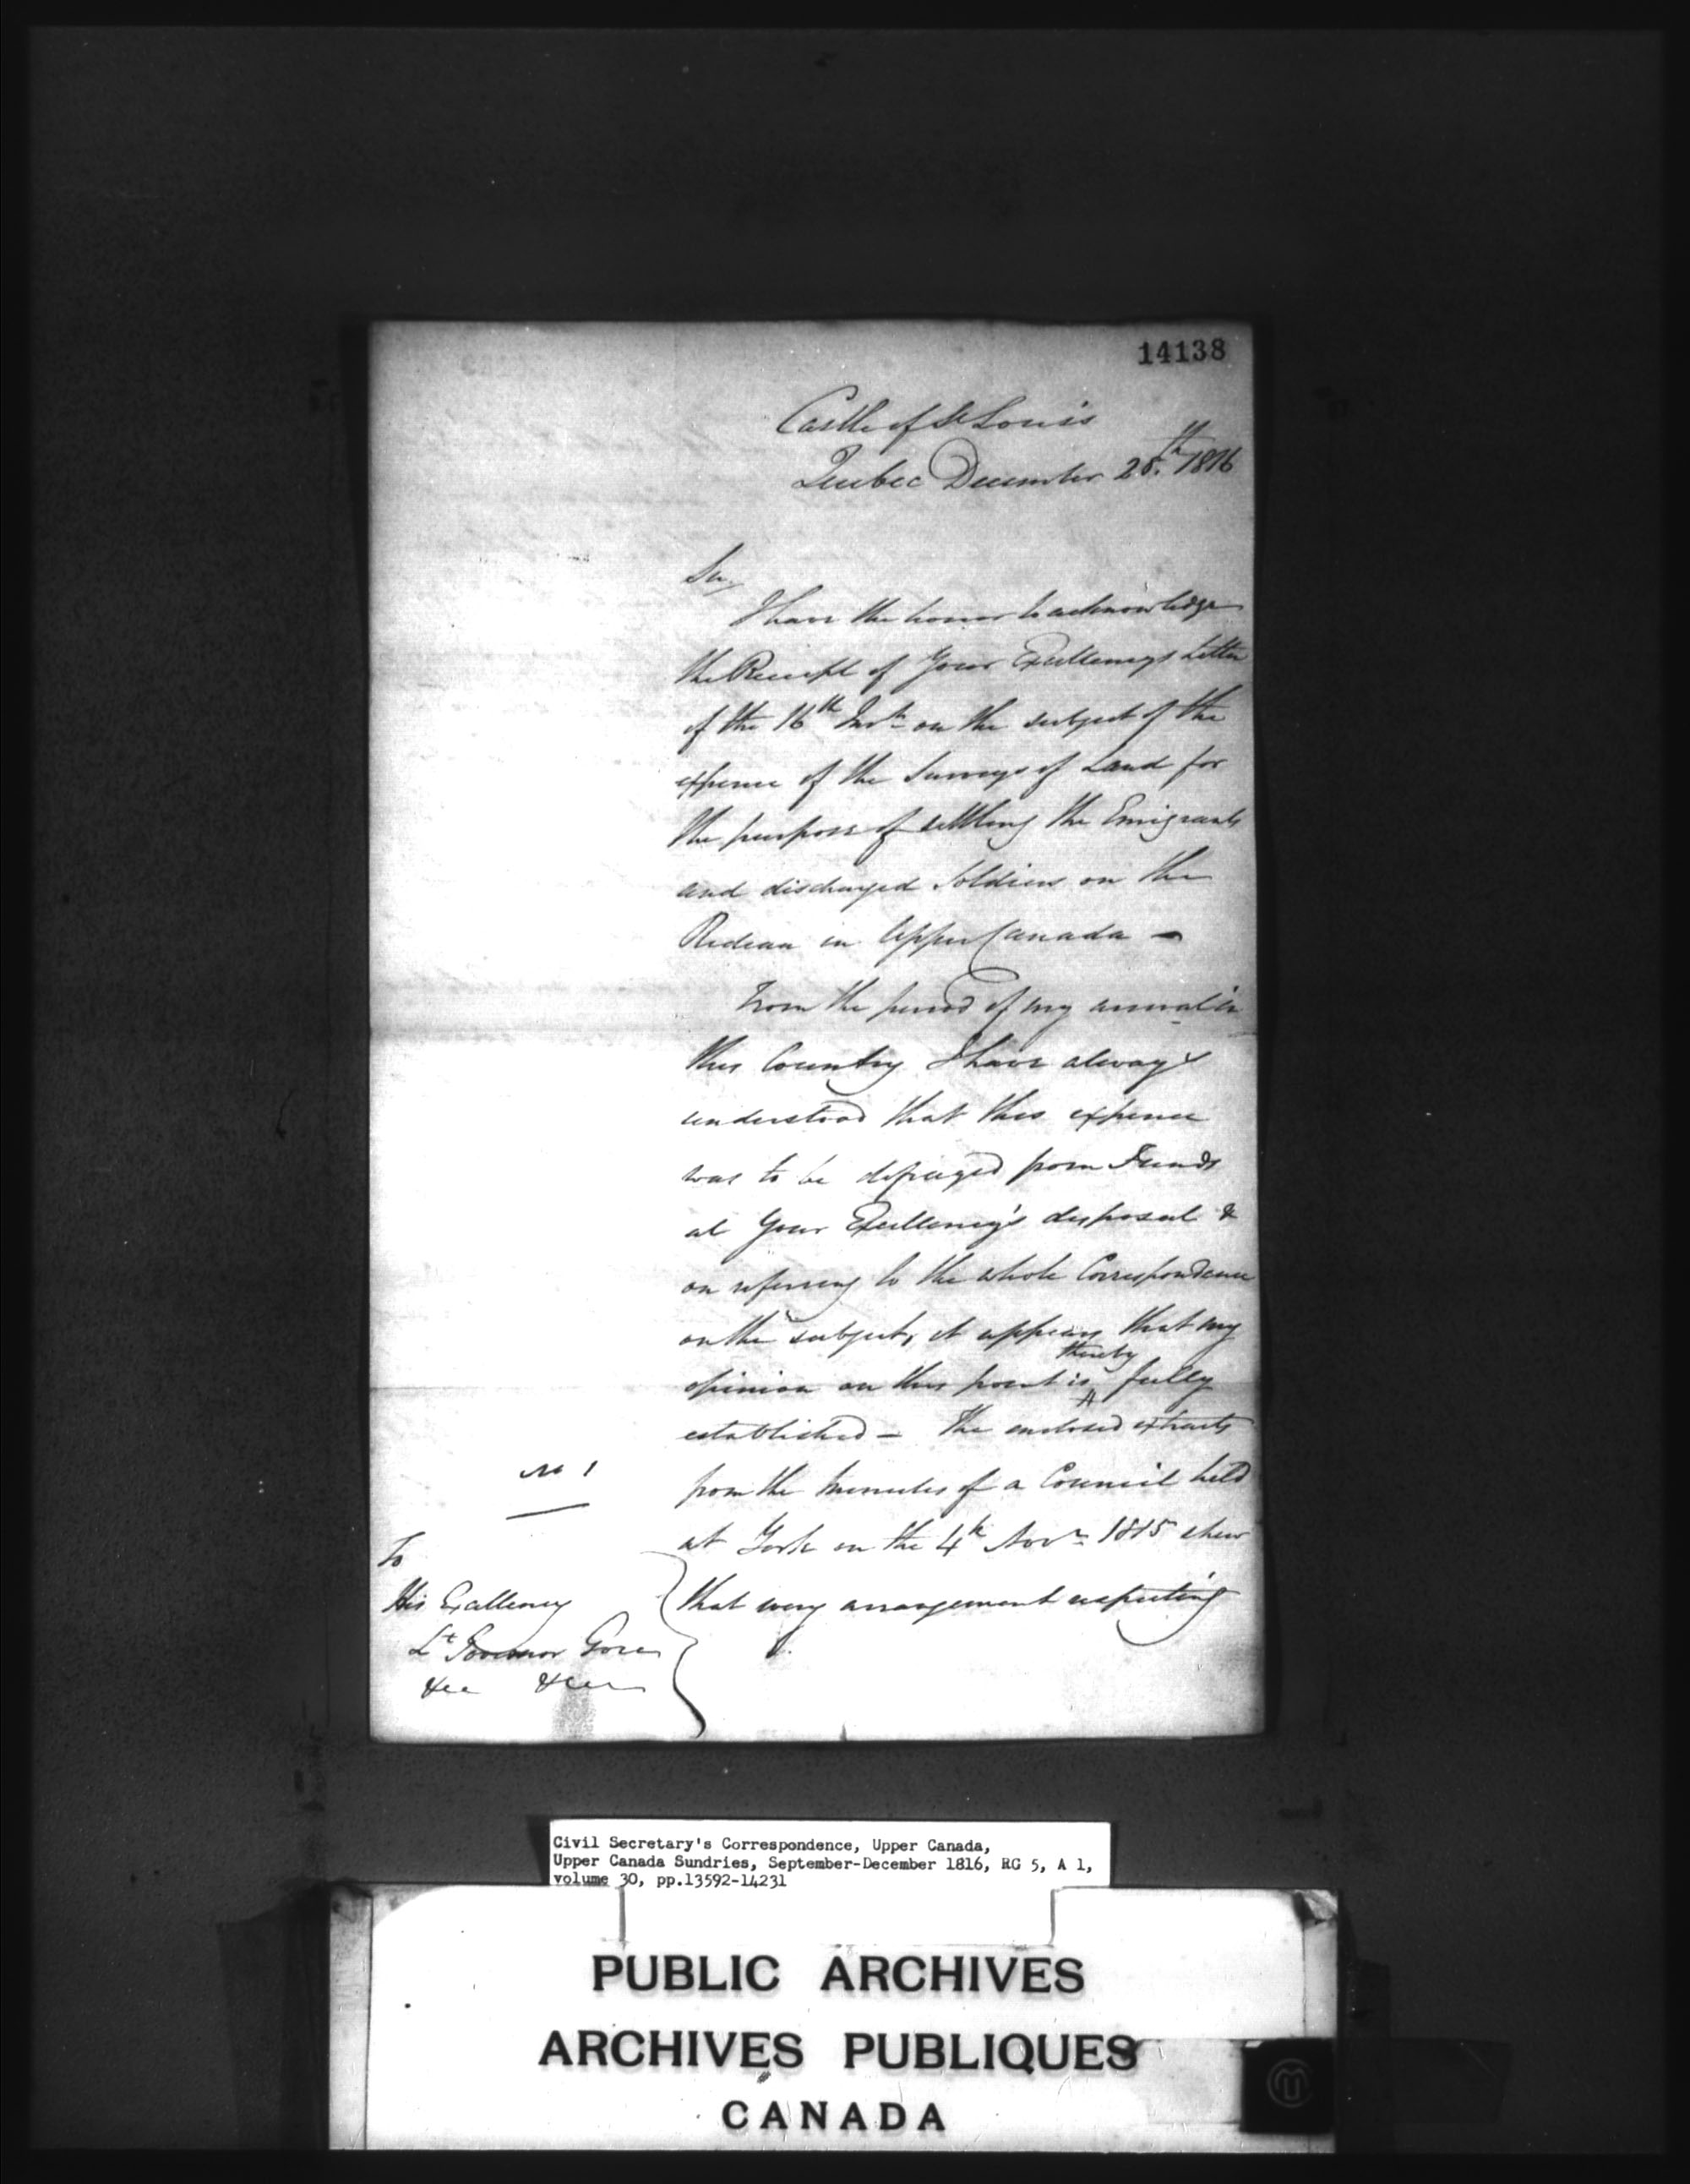 14138
Castle of St Louis
Quebec December 28.th 1816
Sir,
I have the honor to acknowledge
the Receipt of Your Excellencys Letter
of the 16th Inst. on the subject of the
expence of the Surveys of Land for
the purpose of settling the Emigrants
and discharged Soldiers on the
Rideau in Upper Canada —
From the period of my arrival in
this Country I have always
understood that this expence
was to be defrayed from Funds
at Your Excellency's disposal &
on referring to the whole Correspondence
on the subject, it appears that my
opinion on this point is thereby fully
established — The enclosed extracts
from the Minutes of a Council held
at York on the 4th Novr 1815 shew
that every arrangement respecting
No 1
To
His Excellency
Lt Governor Gore
&c &c
Civil Secretary's Correspondence, Upper Canada,
Upper Canada Sundries, September-December 1816, RG 5, A 1,
volume 30, pp.13592-14231
PUBLIC ARCHIVES
ARCHIVES PUBLIQUES
CANADA